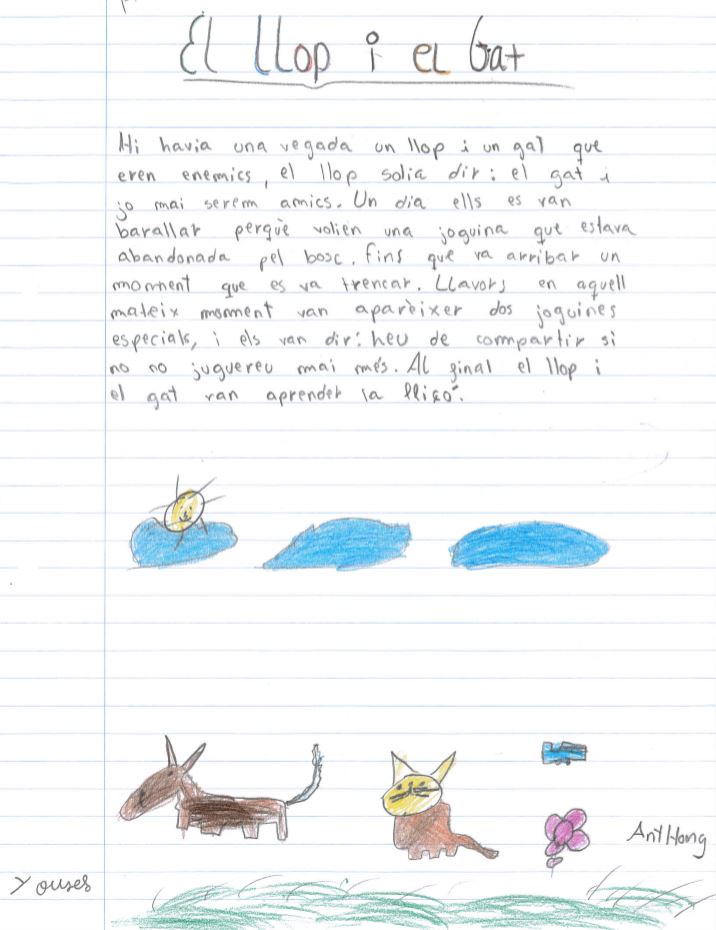 El Llop i el Gat
Hi havia una vegada un llop i un gat que
eren enemics, el llop solia dir: el gat i
jo mai serem amics. Un dia ells es van
barallar perquè volien una joguina que estava
abandonada pel bosc. fins que va arribar un
moment que es va trencar. Llavors en aquell
mateix moment van aparèixer dos joguines
especials, i els van dir: heu de compartir si
no no juguereu mai més. Al final el llop i
el gat van aprender la lliçó.
AntHong
Youses